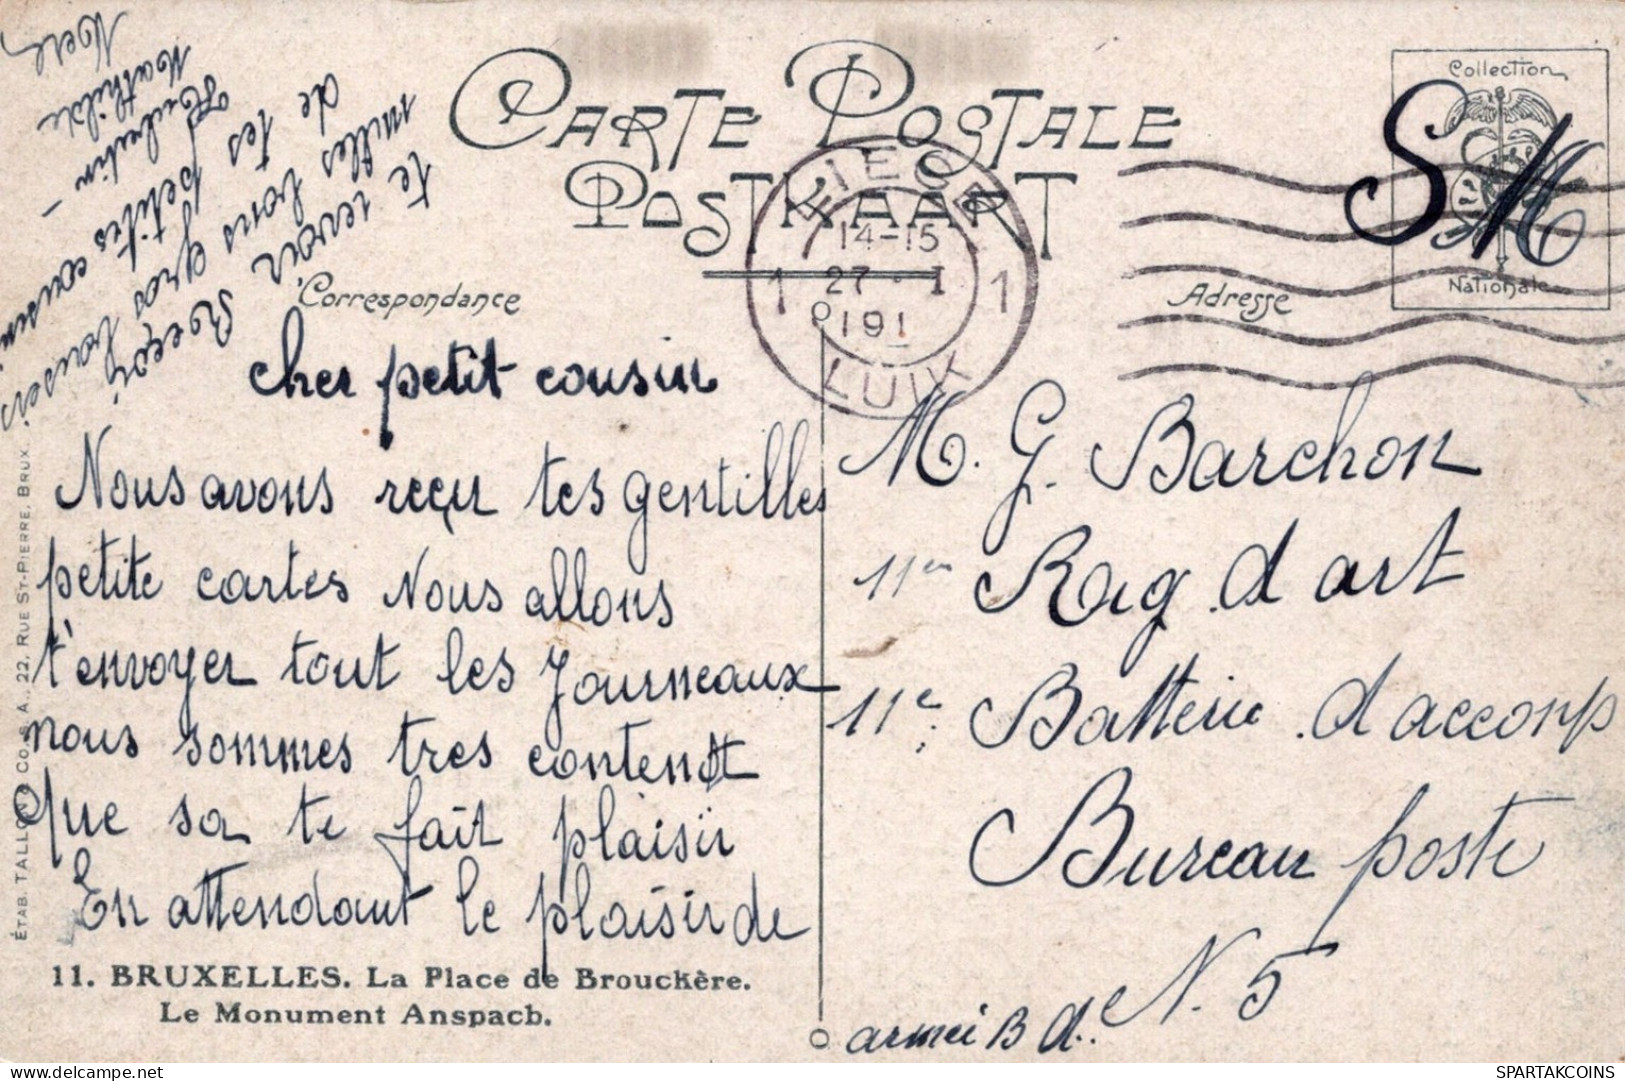 CARTE POSTALE
POSTKAART
Correspondance
Adresse
Collection
Nationale
SM
LIEGE
14-15
1 27 · I 1
191
LUIK
cher petit cousin
Nous avons reçu tes gentilles
petite cartes Nous allons
t'envoyer tout les Journeaux
nous sommes tres content
Que sa te fait plaisir
En attendant le plaisir de
te revoir Reçoi
milles bons gros baiseis
de tes petites cousin
Aubin –
Mathilde
M. G. Barchon
11em Rag. d art
11e Batterie d accomp
Bureau poste
N. 5
armei B d.
11. BRUXELLES. La Place de Brouckère.
Le Monument Anspach.
ÉTAB. TALLON & Co. S. A., 22, RUE ST-PIERRE, BRUX.
SPARTAKCOINS